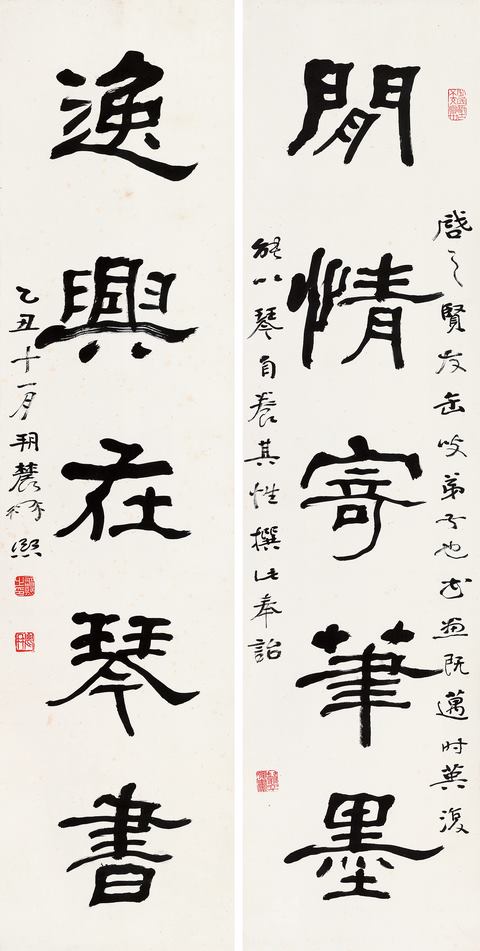 啟之賢友缶叟弟子也書畫既邁时英復
閒情寄筆墨
能以琴自養其性撰此奉詒
逸興在琴書
乙丑十一月朔農髯熙